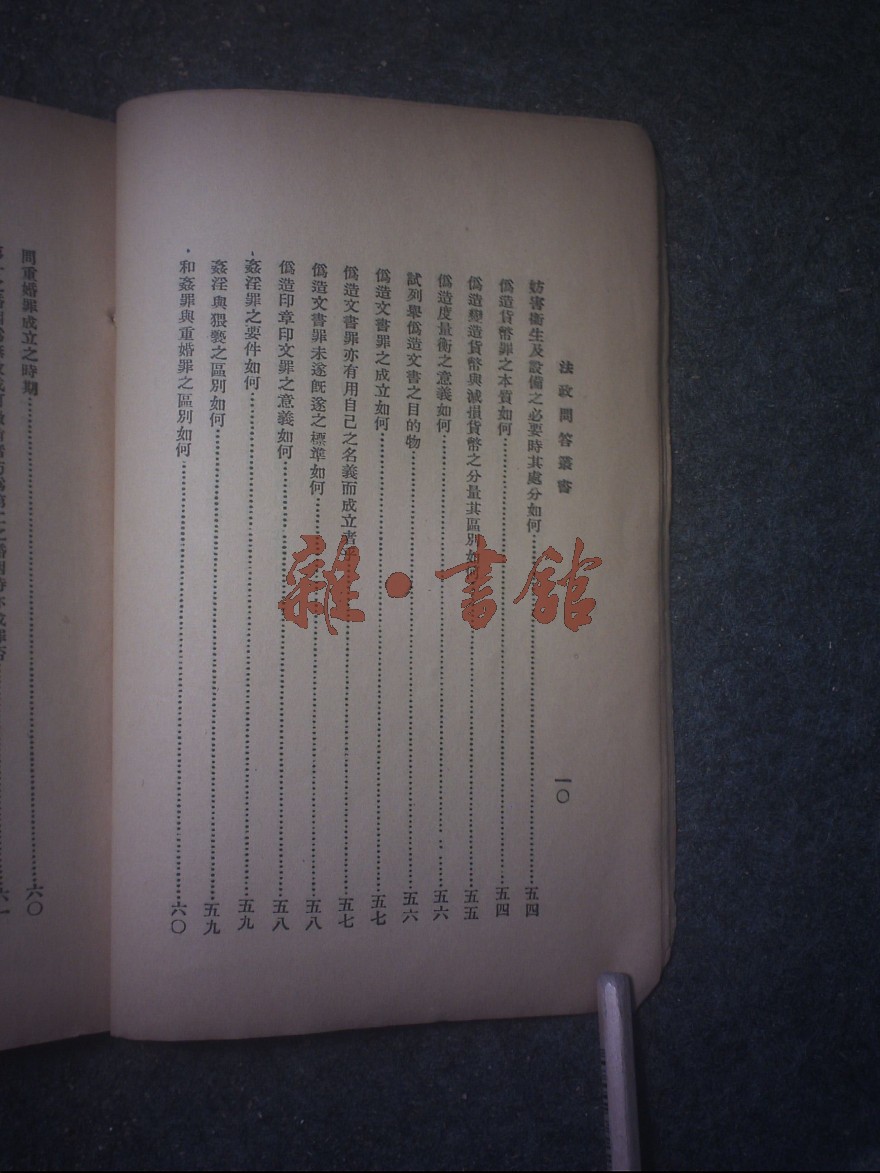 法政問答叢書
一〇
妨害衞生及設備之必要時其處分如何……五四
僞造貨幣罪之本質如何……五四
僞造變造貨幣與減損貨幣之分量其區別如何……五五
僞造度量衡之意義如何……五六
試列舉僞造文書之目的物……五六
僞造文書罪之成立如何……五七
僞造文書罪亦有用自己之名義而成立者……五七
僞造文書罪未遂旣遂之標準如何……五八
僞造印章印文罪之意義如何……五八
姦淫罪之要件如何……五九
姦淫與猥褻之區別如何……五九
和姦罪與重婚罪之區別如何……六〇
問重婚罪成立之時期……六〇
雜·書館